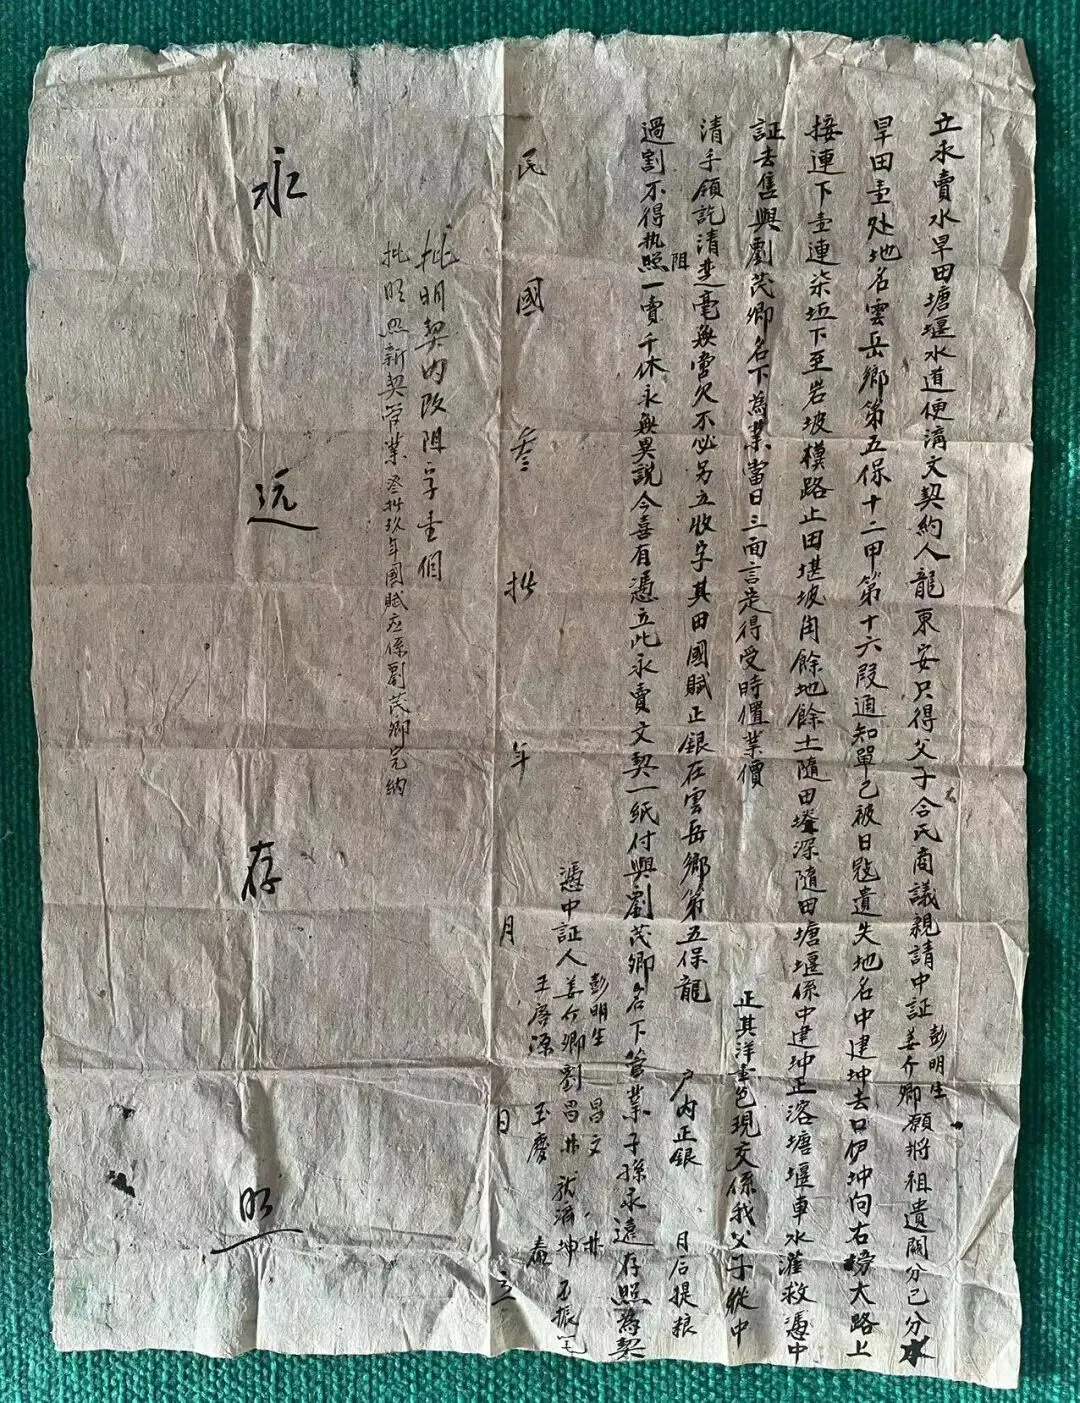 立永賣水旱田塘堰水道使淸文契約人龍東安只得父子合氏商議親請中証彭明生姜介卿願將祖遺鬮分己分水
旱田壹处地名雲岳鄉第五保十二甲第十六段通知單已被日寇遺失地名中建坤去口伊坤向右榜大路上
接連下壹連柒坵下至岩坡橫路止田堪坡角餘地餘土隨田塝深隨田塘堰係中建坤正溶塘堰車水灌救憑中
証去售與劉茂卿名下為業當日三面言定得受時值業價
正其洋壹色現交係我父子從中
清手領訖清楚毫無啻欠不必另立收字其田國賦正銀在雲岳鄉第五保龍
戶內正銀
月后提粮
過割不得执照阻一賣千休永無異說今喜有憑立此永賣文契一紙付與劉茂卿名下管業子孫永遠存照為契
憑中証人
彭明生
姜介卿
王唐源
劉昌林
昌文
玉慶
龍濟坤
民國叁拾年月日立
批明契內改阻字壹個
批明照新契管業叁拾玖年國賦应係劉茂卿完納
永遠存照